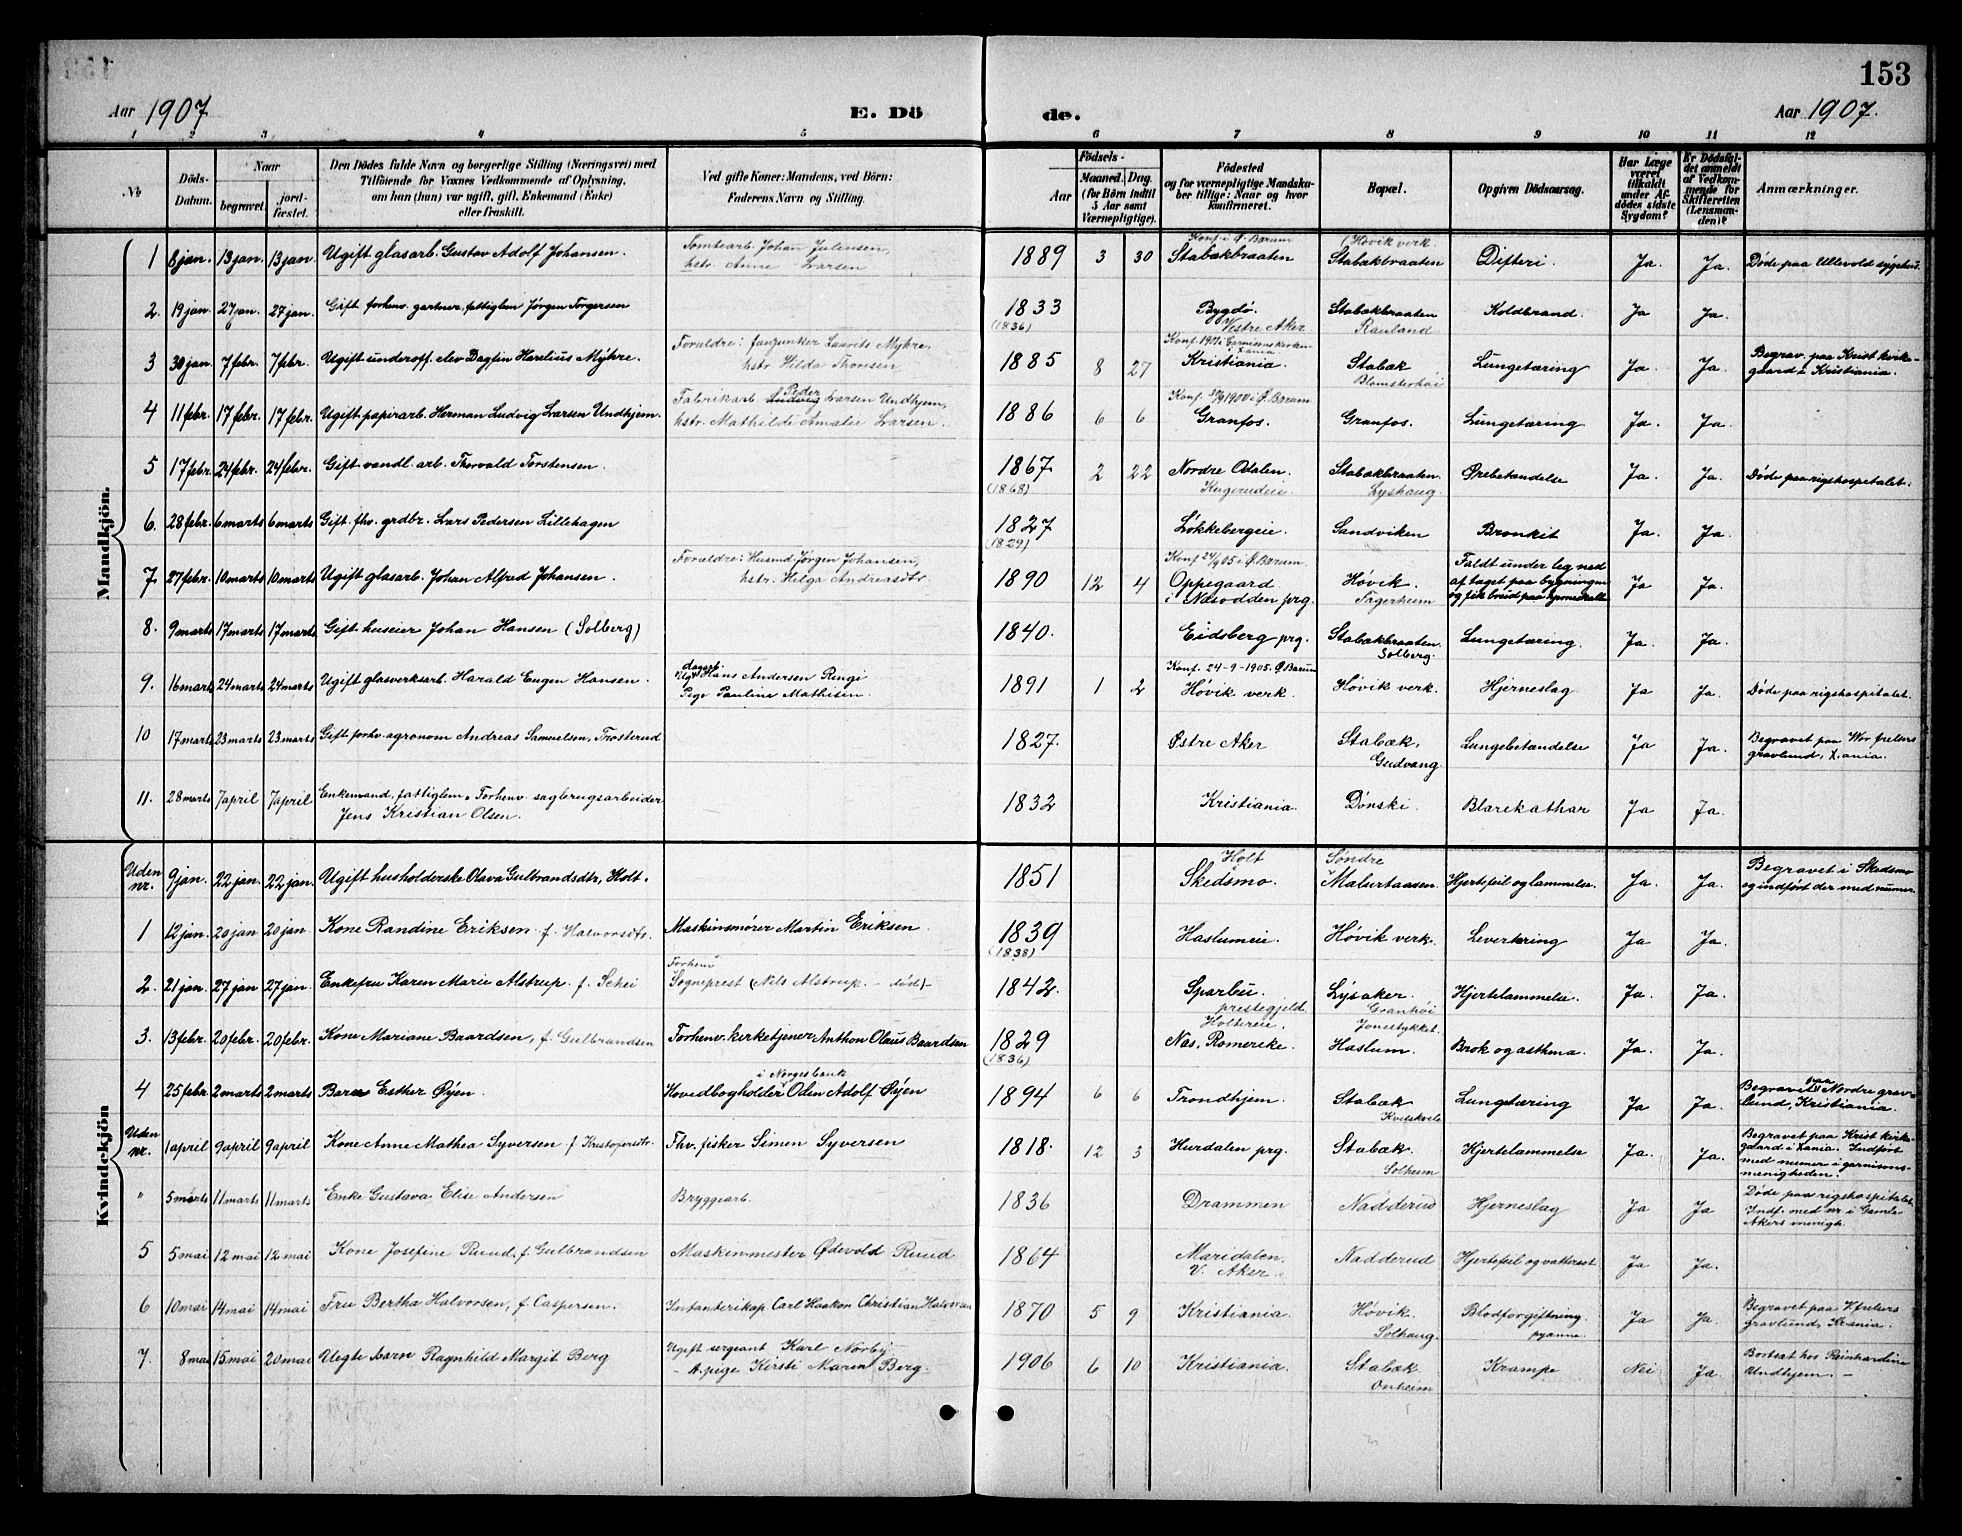 153
Aar 1907
E. Dö
de.
Aar 1907.
1 2 3 4 5 6 7 8 9 10 11 12
№
Döds-Datum.
Naar
begravet.
jord-fæstet.
Den Dödes fulde Navn og borgerlige Stilling (Næringsvei) med
Tilföiende for Voxnes Vedkommende af Oplysning,
om han (hun) var ugift, gift, Enkemand (Enke)
eller fraskilt.
Ved gifte Koner: Mandens, ved Börn:
Faderens Navn og Stilling.
Födsels-
Aar
Maaned. Dag.
(for Börn indtil
5 Aar samt
Værnepligtige).
Födested
og for værnepligtige Mandska-
ber tillige: Naar og hvor
konfirmeret.
Bopæl.
Opgiven Dödsaarsag.
Har Læge
været
tilkaldt
under Af-
dödes sidste
Sygdom?
Er Dödsfal-
det anmeldt
af Vedkom-
mende for
Skifteretten
(Lensman-
den)?
Anmærkninger.
Mandkjön.
1 8 jan. 13 jan. 13 jan. Ugift glasarb. Gustav Adolf Johansen. Tomtearb. Johan Julensen, hstr. Anne Larsen 1889 3 30 Konf. i Ø. Bærum Stabækbraaten (Høvik verk. Stabækbraaten Difteri. Ja. Ja. Døde paa Ullevold sygehus.
2. 19 jan. 27 jan. 27 jan. Gift forhenv. gartner, fattiglem Jørgen Torgersen 1833 (1836) Bygdø. Vestre Aker Stabækbraaten Rauland Koldbrand. Ja Ja.
3 30 jan. 7 febr. 7 febr. Ugift underoff. elev Dagfin Marelius Myhre. Forældre: fanjunker Laurits Myhre, hstr. Hilda Thoresen 1885 8 27 Konf. i Garnisonskirken Xania Kristiania. Stabæk Blomsterhøi Lungetæring Ja. Ja. Begrav. paa Krist kirke-gaard i Kristiania.
4 11 febr. 17 febr. 17 febr. Ugift papirarb. Herman Ludvig Larsen Undhjem. Fabrikarb. Peder Larsen Undhjem, hstr. Mathilde Amalie Larsen. 1886 6 6 Konf. 1900 i Ø. Bærum Granfos. Granfos. Lungetæring Ja. Ja.
5 17 febr. 24 febr. 24 febr. Gift vandl. arb. Thorvald Torstensen. 1867 (1868) 2 22 Nordre Odalen. Stabækbraaten Lyshaug. Ørebetændelse Ja. Ja. Døde paa rigshospitalet.
6. 28 febr. 6 marts 6 marts Gift. fhv. grdbr. Lars Pedersen Lillehagen 1827 (1829) Løkkebergeie Sandviken Bronkit Ja. Ja.
7. 27 febr. 10 marts 10 marts Ugift glasarb. Johan Alfred Johansen. Forældre: Husmd Jørgen Johansen, hstr. Helga Andreasdtr. 1890 12 4 Konf 24/9 05 i Ø. Bærum. Oppegaard i Næsodden prg. Høvik. Fagerheim Faldt under leg ned af taget paa bygningen og fik brud paa hjerneskallen Ja Ja.
8. 9 marts 17 marts 17 marts Gift huseier Johan Hansen (Solberg) 1840. Eidsberg prg. Stabækbraaten. Solberg. Lungetæring. Ja. Ja.
9. 16 marts 24 marts 24 marts Ugift glasverksarb. Harald Eugen Hansen. dagarb. Hans Andersen Ringi Pige Pauline Mathisen. 1891 1 2 Konf. 24-9-1905. Ø. Bærum Høvik verk. Høvik verk. Hjerneslag Ja Ja. Døde paa rigshospitalet.
10 17 marts 23 marts 23 marts Gift forhv. agronom Andreas Samuelsen, Trosterud 1827. Østre Aker Stabæk. Gudvang Lungebetændelse Ja Ja. Begravet paa Vor frelsers gravlund, Xania.
11. 28 marts 7 april 7 april Enkemand, fattiglem. Forhenv. sagbrugsarbeider Jens Kristian Olsen. 1832 Kristiania. Dønski. Blærekathar Ja Ja.
Kvindekjön
Uden nr. 9 jan. 22 jan. 22 jan. Ugift husholderske Olava Gulbrandsdtr. Holt. 1851 Holt Skedsmo. Søndre Malurtaasen. Hjertefeil og lammelse. Ja. Ja. Begravet i Skedsmo og indført der med numer.
1 12 jan. 20 jan 20 jan. Kone Randine Eriksen f. Halvorsdtr. Maskinsmører Martin Eriksen. 1839 (1838) Haslumeie. Høvik verk. Levertæring Ja Ja.
2. 21 jan. 27 jan 27 jan. Enkefru Karen Marie Alstrup f. Schei Forhenv Sogneprest (Nils Alstrup - død)- 1842. Sparbu prestegjeld. Lysaker. Granhøi Hjertelammelse. Ja. Ja.
3. 13 febr. 20 febr. 20 febr. Kone Mariane Baardsen, f. Gulbrandsen Forhenv. kirketjener Anthon Olaus Baardsen 1829 (1836) Holtereie, Næs, Romerike. Jonsstykket. Haslum. Brok og asthma. Ja. Ja.
4 25 febr. 2 marts 2 marts Barn Esther Øyen. i Norgesbank Hovedbogholder Odin Adolf Øyen 1894 6 6 Trondhjem. Stabæk Kvisekvile Lungetæring Ja Ja. Begravet paa Nordre grav-lund, Kristiania.
Uden nr. 1 april 9 april 9 april Kone Anne Mathea Syversen f. Kristofersdtr. Fhv. fisker Simen Syversen 1818. 12 3 Hurdalen prg. Stabæk. Solheim Hjertelammelse Ja. Ja. Begravet paa Krist kirke-gaard i Xania. Indført med numer i garnisons-menigheden.
" 5 marts 11 marts 11 marts Enke Gustava Elise Andersen Bryggearb. 1836 Drammen Nadderud Hjerneslag Ja Ja Døde paa rigshospitalet. Indf. med nr. i Gamle Akers menigh.
5 5 mai 12 mai 12 mai Kone Josefine Ruud, f. Gulbrandsen Maskinmester Ødevold Ruud 1864 Maridalen. V. Aker. Nadderud Hjertefeil og vattersot Ja Ja.
6 10 mai 14 mai 14 mai Fru Bertha Halvorsen, f. Caspersen. Infanterikap. Carl Haakon Christian Halvorsen 1870 5 9 Kristiania. Høvik. Solhaug. Blodforgiftning. pyæmie. Ja Ja. Begravet paa V. frelsers gravlund, Krania.
7. 8 mai 15 mai 20 mai Uegte barn Ragnhild Margit Berg Ugift sergeant Karl Norby - A. pige Kirsti Marie Berg. 1906 6 10 Kristiania. Stabæk Onheim Krampe Nei Ja. Bortsat hos Reinhardine Undhjem. -